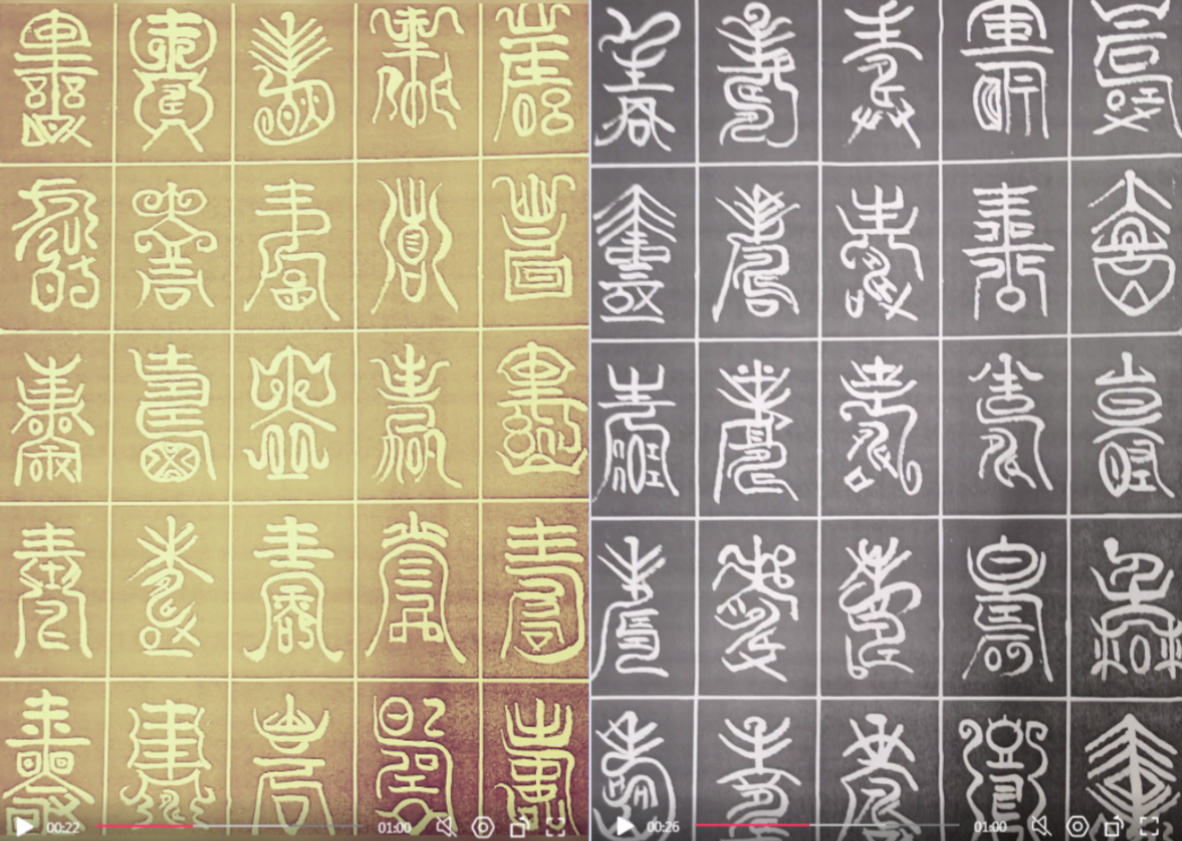 壽壽壽壽壽
壽壽壽壽壽
壽壽壽壽壽
壽壽壽壽壽
壽壽壽壽壽
00:22 01:00
壽壽壽壽壽
壽壽壽壽壽
壽壽壽壽壽
壽壽壽壽壽
壽壽壽壽壽
00:26 01:00